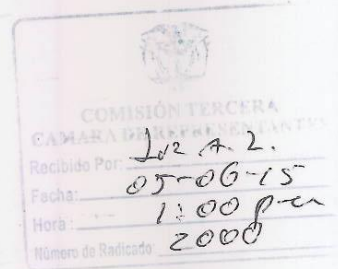 COMISIÓN TERCERA
CAMARA DE REPRESENTANTES
Recibido Por: Luz A. L.
Fecha: 05-06-15
Hora: 1:00 p-m
Número de Radicado: 2000